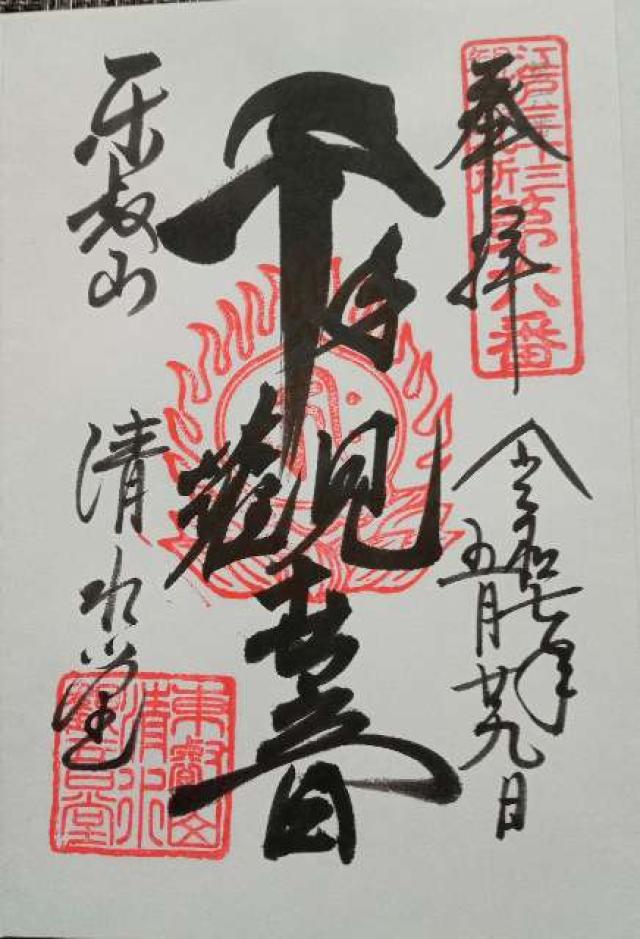 江戸三十三
観音札所
第六番
奉拝
令和七年
五月廿九日
千手觀音
東叡山
清水堂
東叡山
清水
觀音堂